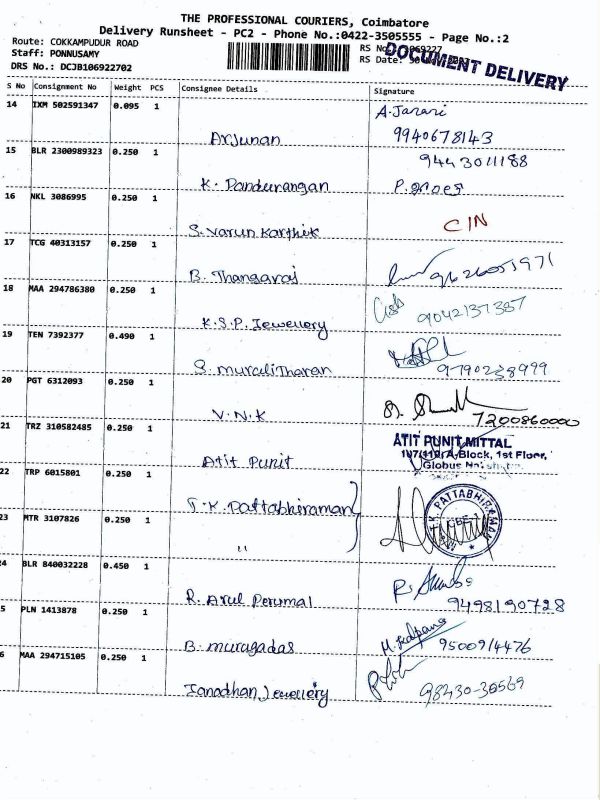 THE PROFESSIONAL COURIERS, Coimbatore
Delivery Runsheet - PC2 - Phone No.:0422-3505555 - Page No.:2
Route: COKKAMPUDUR ROAD
Staff: PONNUSAMY
DRS No.: DCJB106922702
RS No
RS Date:
DOCUMENT DELIVERY
S No Consignment No Weight PCS Consignee Details Signature
14 IXM 502591347 0.095 1 Arjunan A.Janani
9940678143
15 BLR 2300989323 0.250 1 K. Pandurangan 9443011188
16 NKL 3086995 0.250 1 S. Varun Karthik CIN
17 TCG 40313157 0.250 1 B. Thangaraj
18 MAA 294786380 0.250 1 K.S.P. Jewellery 9042137387
19 TEN 7392377 0.490 1 S. muraliTharan 9790238999
20 PGT 6312093 0.250 1 V.N.K 7200860000
21 TRZ 310582485 0.250 1 Atit Punit ATIT PUNIT MITTAL
A, Block, 1st Floor,
Globus
22 TRP 6015801 0.250 1 T.K. Pattabhiraman T.K. PATTABHIRAMAN
23 MTR 3107826 0.250 1 "
24 BLR 840032228 0.450 1 R. Arul Perumal 9498190728
5 PLN 1413878 0.250 1 B. murugadas M. Kalpana 9500914476
6 MAA 294715105 0.250 1 Janadhan Jewellery 98430-30569